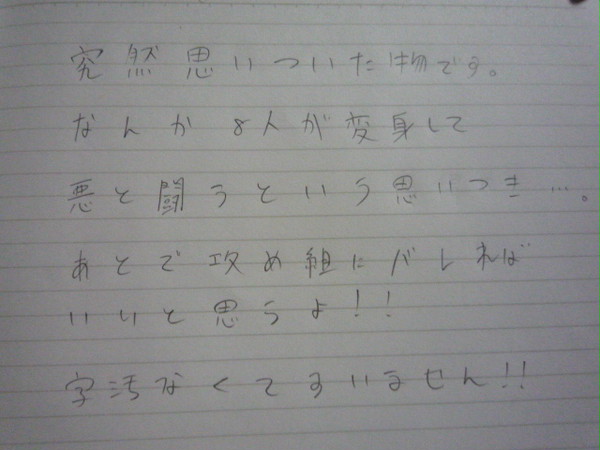 突然思いついた物です。
なんか8人が変身して
悪と闘うという思いつき…。
あとで攻め組にバレれば
いいと思うよ!!
字汚なくてすいません!!